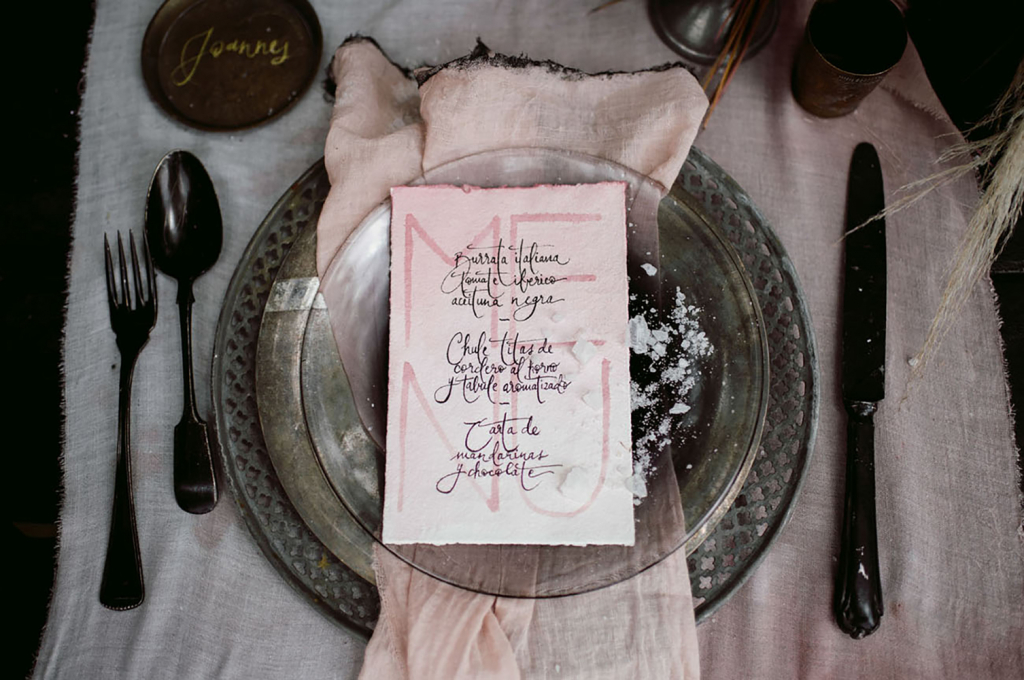 Joannes
ME
NU
Burrata italiana
tomate iberico
aceituna negra
–
Chule titas de
cordero al horno
y tabule aromatizado
–
Tarta de
mandarinas
y chocolate